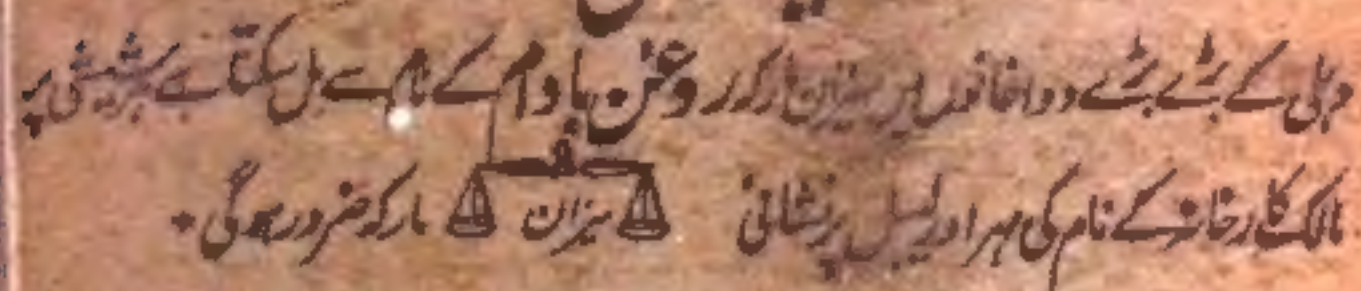 دہلی کے بڑے بڑے دواخانوں میں میزان مارکہ روغن بادام کے نام سے مل سکتا ہے ہر شیشی پر
مالک کارخانہ کے نام کی مہر اور لیبل پر نشانی میزان مارکہ ضرور ہوگی ۔